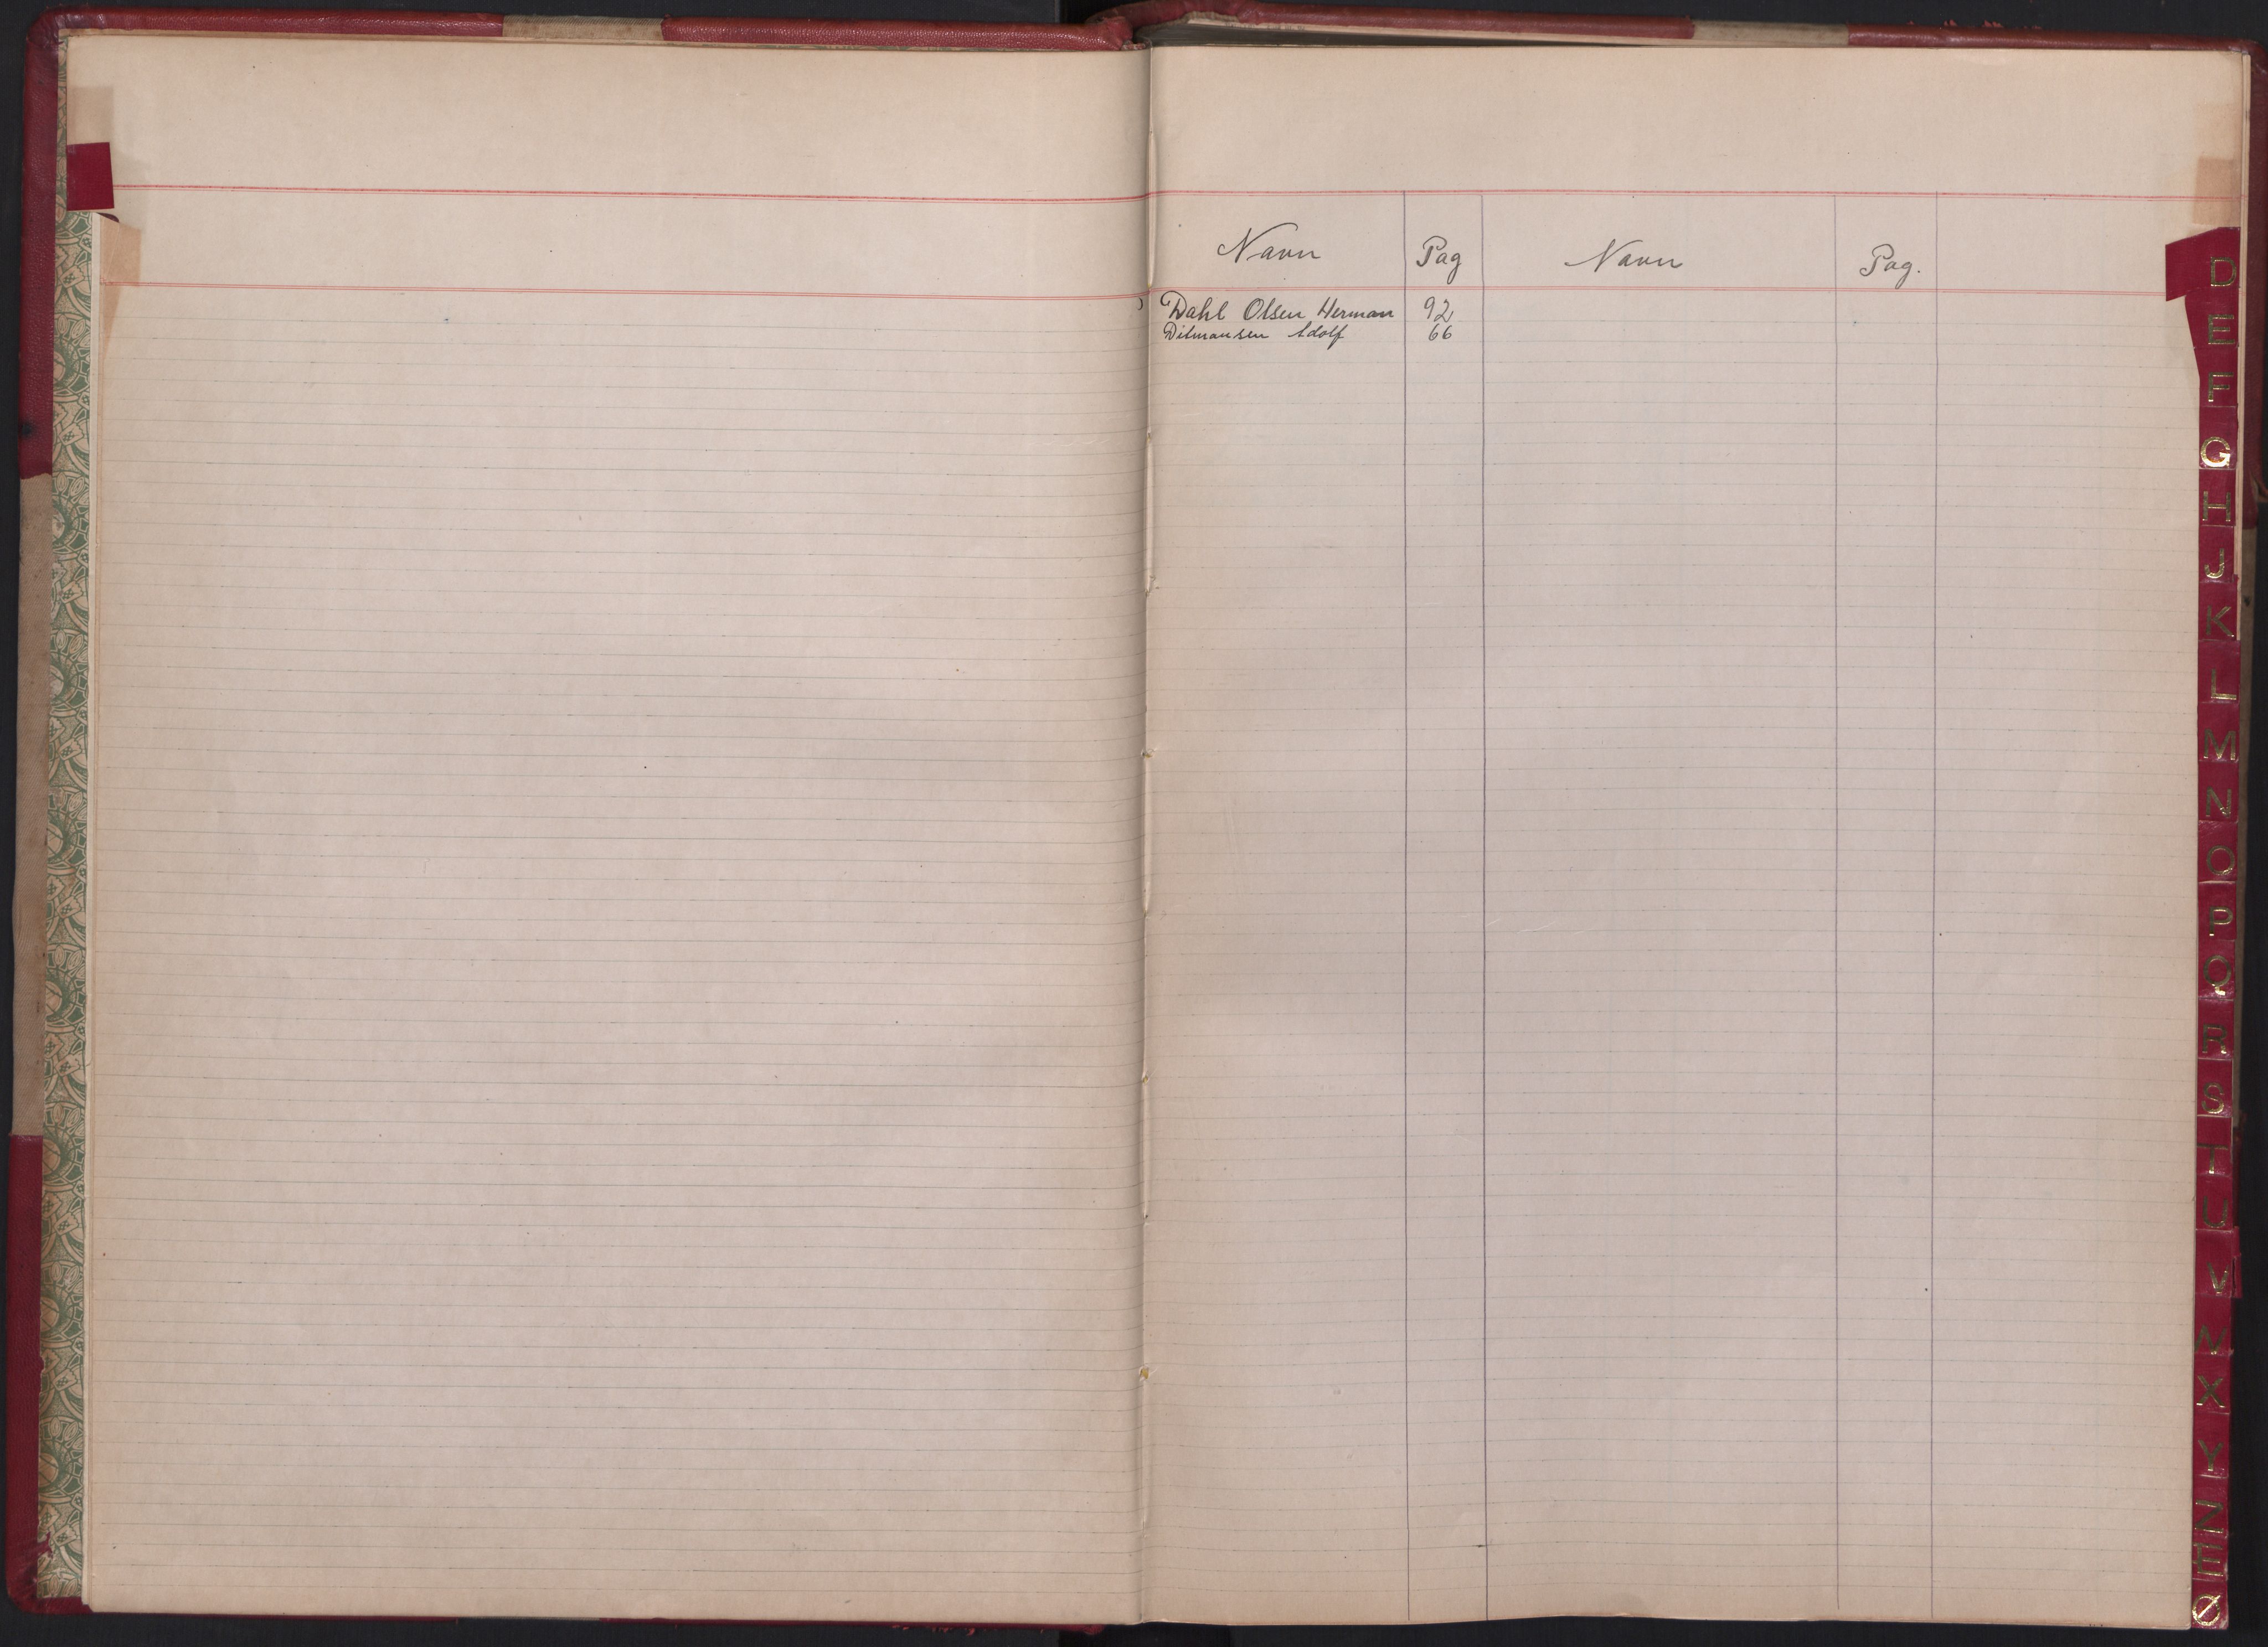 Navn Pag Navn Pag.
Dahl Olsen Herman 92
Ditmansen Adolf 66
D
E
F
G
H
J
K
L
M
N
O
P
Q
R
S
T
U
V
W
X
Y
Z
Æ
Ø